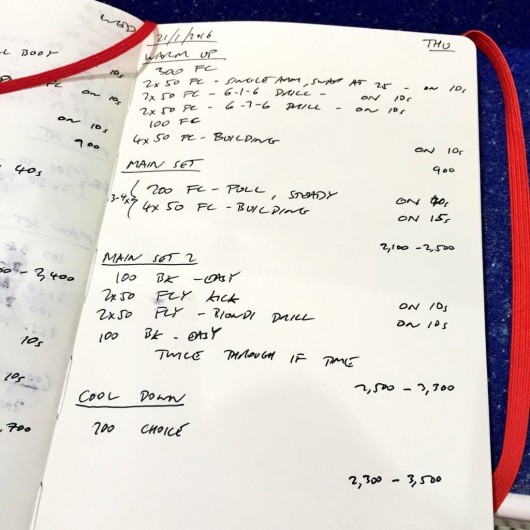 WED
L BODY
10s
ON 10s
ON 10s
900
40s
00 - 3,400
10s
10s
,700
21/1/2016 THU
WARM UP
300 FC
2x50 FC - SINGLE ARM, SWAP AT 25 - ON 10s
2x50 FC - 6-1-6 DRILL - ON 10s
2x50 FC - 6-3-6 DRILL - ON 10s
100 FC
4x50 FC - BUILDING ON 10s
900
MAIN SET
3-4x { 200 FC - PULL, STEADY ON 40s
4x50 FC - BUILDING ON 15s
2,100 - 2,500
MAIN SET 2
100 BK - EASY
2x50 FLY KICK ON 10s
2x50 FLY - BIONDI DRILL ON 10s
100 BK - EASY
TWICE THROUGH IF TIME
2,500 - 3,300
COOL DOWN
200 CHOICE
2,300 - 3,500